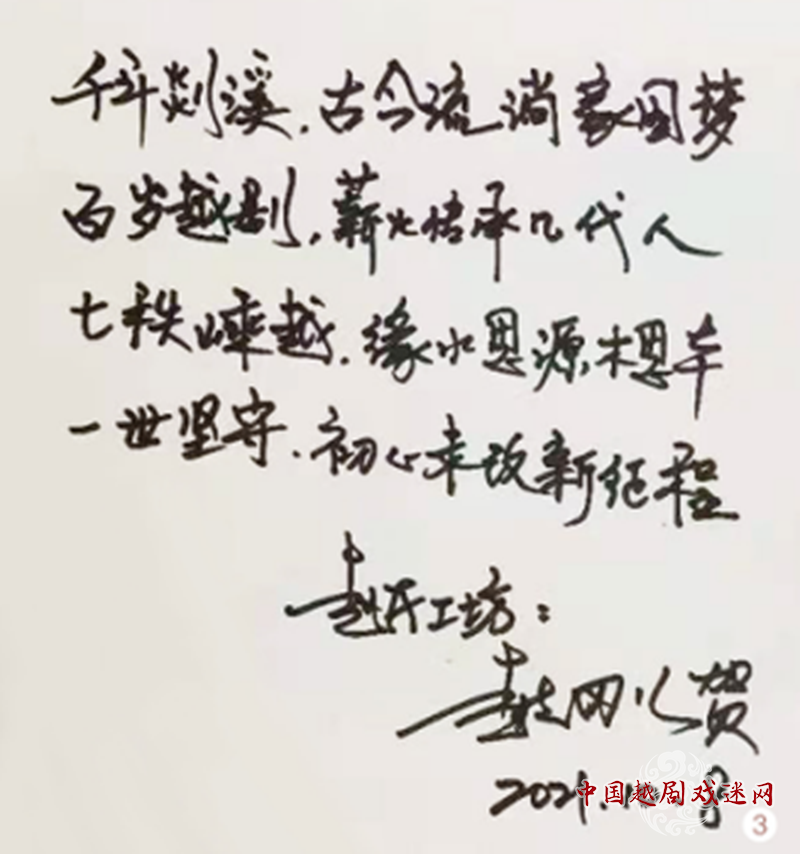 千年剡溪，古今流淌家国梦
百岁越剧，薪火传承几代人
七秩嵊越，缘水思源木思本
一世坚守，初心未改新征程
赵氏工坊：
赵志刚贺
2021.
中国越剧戏迷网
3